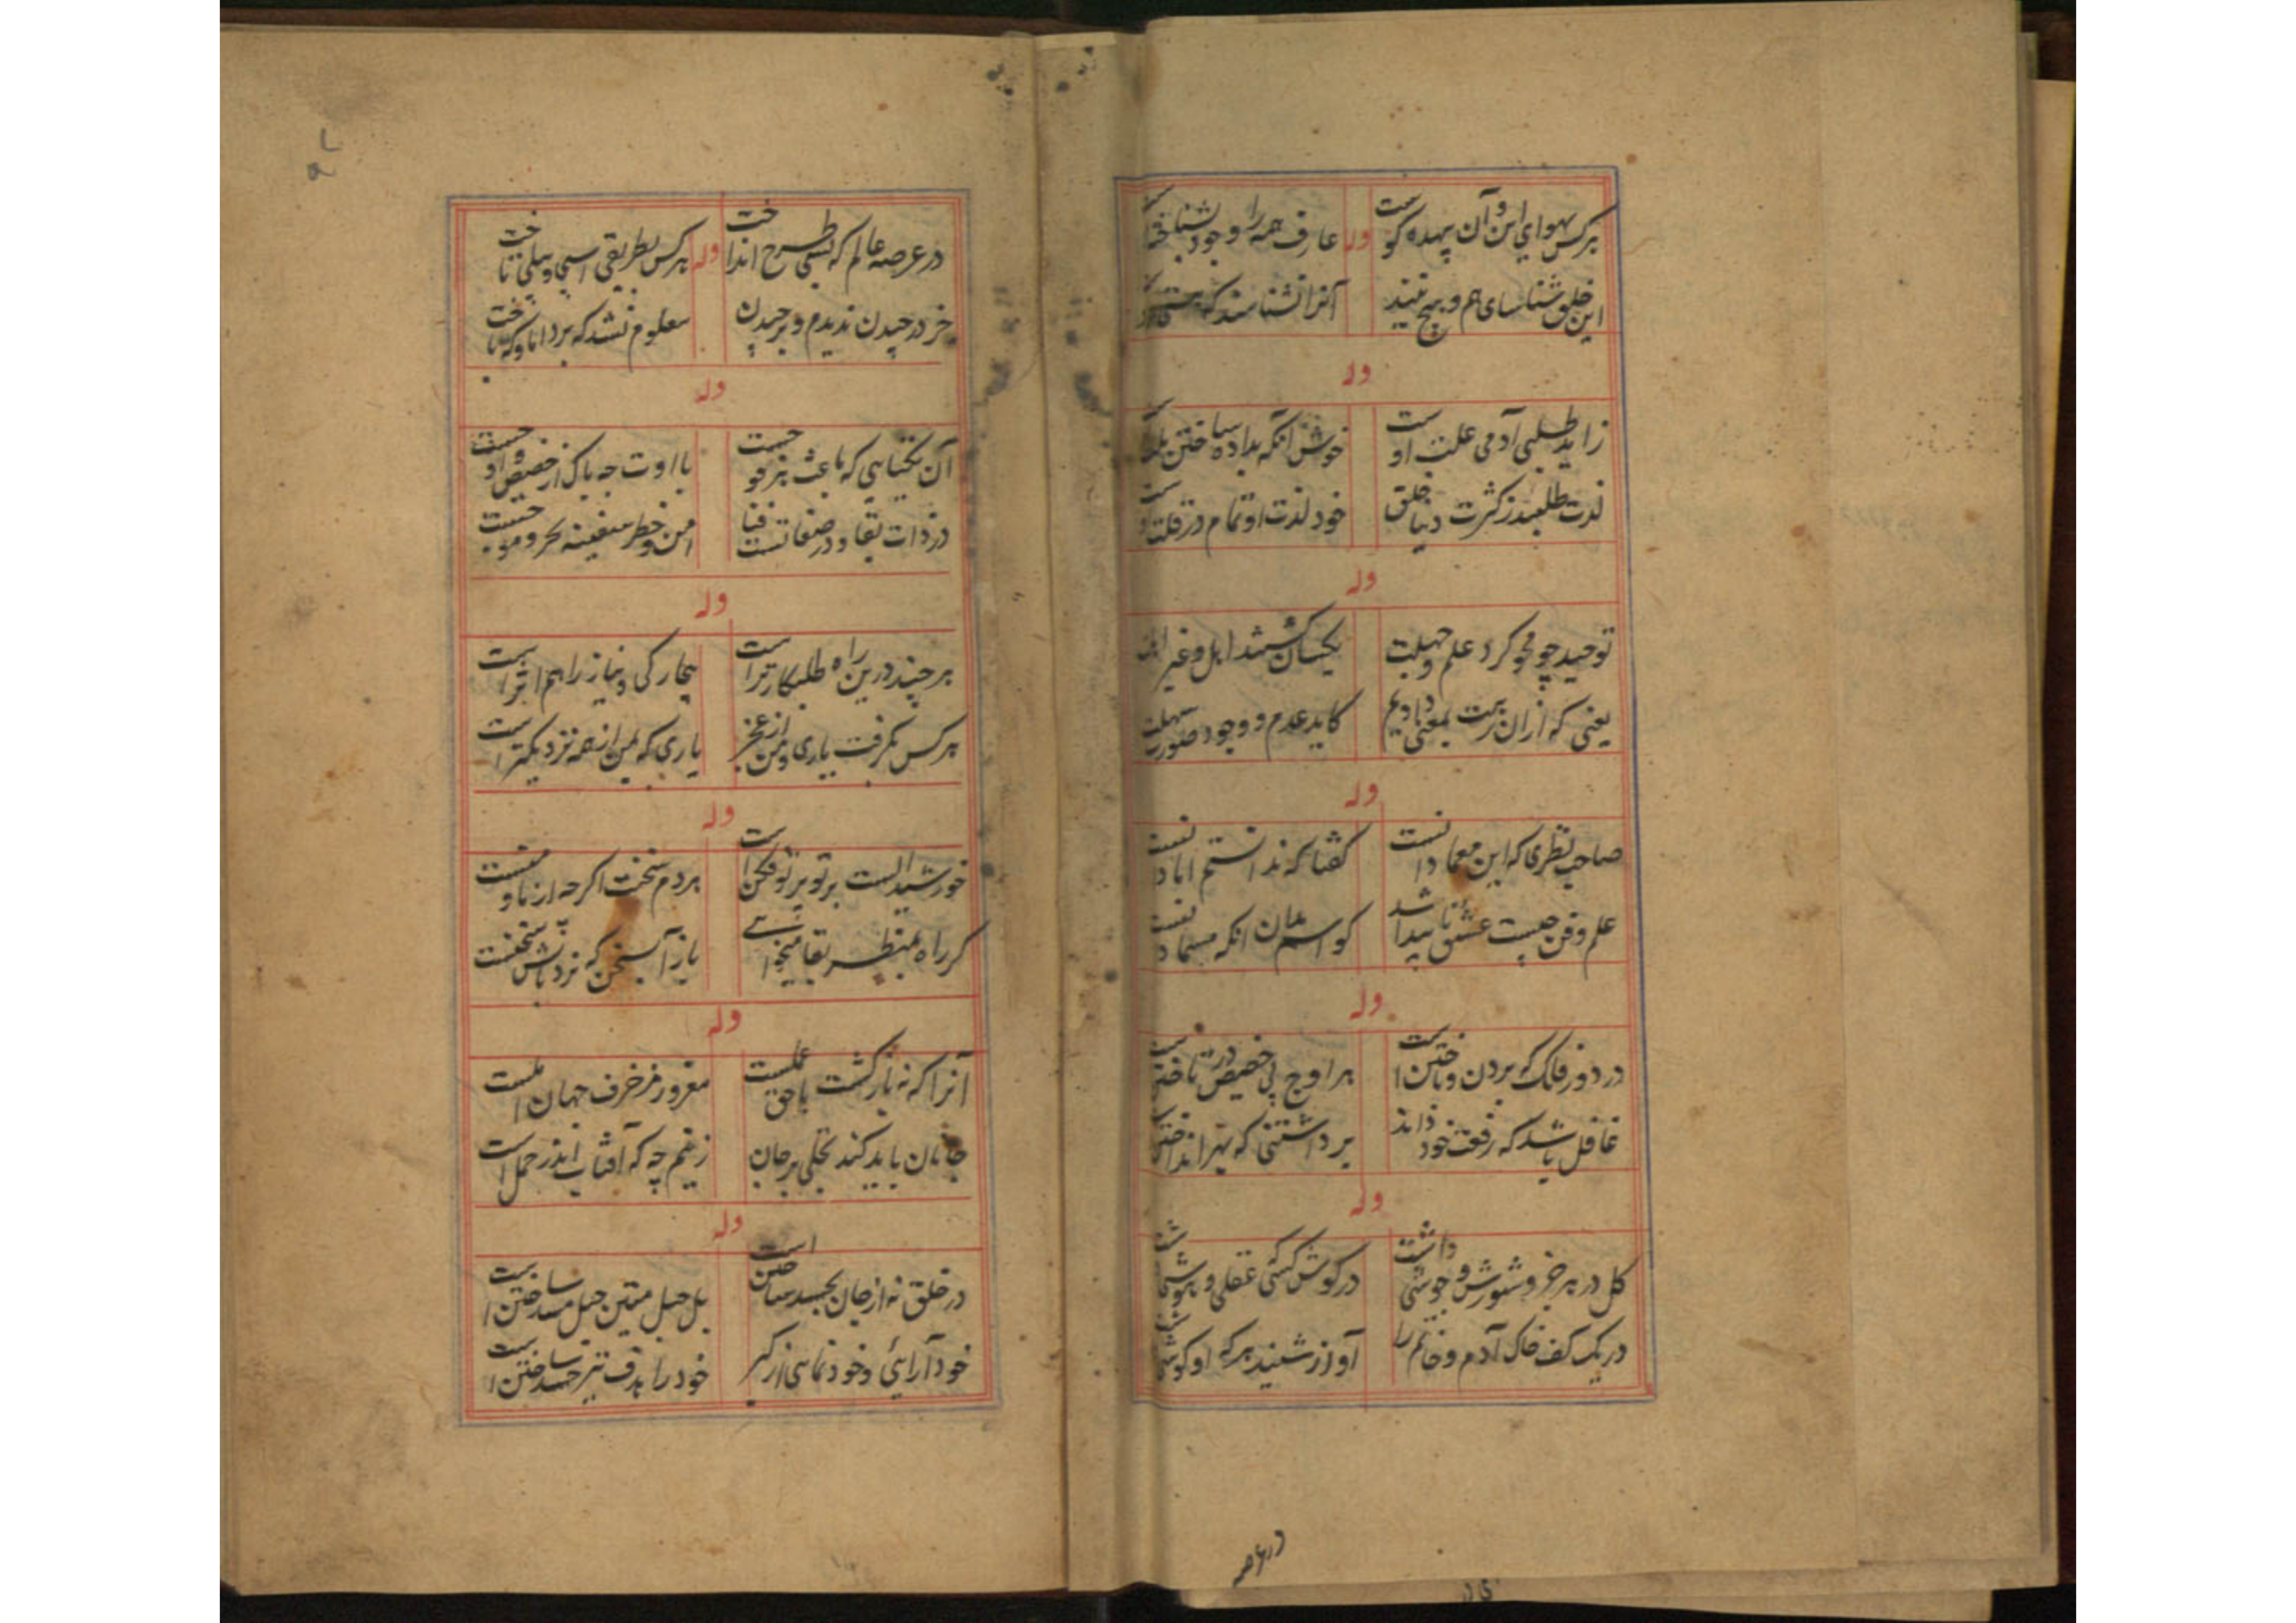 هرکس بهوای این و آن بیهده کوست
وله
عارف همه را وجود بشناخته
این خلق شناسای هم و هیچ نیند
آنرا نشناسند که
وله
زاید طلبی آدمی علت اوست
خوش آنکه بداده ساختن
لذت طلبند ز کثرت دنیا خلق
خود لذت او تمام در قلت
وله
توحید چو محو کرد علم و جهلت
یکسان کشتند اهل و غیر
یعنی که ازان نیست بمعنی دادیم
کاید عدم و وجود صورت سهلت
وله
صاحب نظری که این معما دانست
گفتا که ندانستم اما دانست
علم و فن چیست عشق ناپیدا شد
کو اسم بدان انکه مسما دانست
وله
در دور فلک که بردن و باختن است
بر اوج پی حضیض در تاختن
غافل باشد که رفعت خود داند
برداشتنی که بهر انداختن
وله
کل در بر خروش و شورش و جوشی داشت
در کوش کسی عقلی و هوشی
در یک کف خاک آدم و خاتم را
آواز شنید هر که او کوشی
در عرصه
در عرصه عالم که بسی طرح انداخت
وله
هرکس بطریقی اسپی و پیلی تاخت
خر در چیدن ندیدم و برچیدن
معلوم نشد که برد اما و که باخت
وله
آن یکتایی که باعث هر فو حیست
با اوت چه باک از حضیض و اوحیست
در ذات بقا و در صفاتست فنا
امن و خطر سفینه بحر و موحیست
وله
هر چند درین راه طلبکارتر است
بیچارگی و نیاز را هم اثر است
هرکس نکرفت یاری و من از عجز
یاری که بمن از همه نزدیکتر است
وله
خورشید الست پرتو بر تو فکن است
هر دم سخنت اکرچه از ما و منست
کر راه بمنظر بقا میخواهی
باز آ بسخن که نردبانش سخنست
وله
آنرا که نه بازکشت با حق عملست
مغرور مزخرف جهان املست
جانان باید کند تجلی بر جان
زینم چه که آفتاب اندر حمل است
وله
در خلق نه از جان بجسد ساختن است
بل حبل متین حبل مسد ساختن است
خودآرایی و خودنمایی از کبر
خود را هدف تیر حسد ساختن است